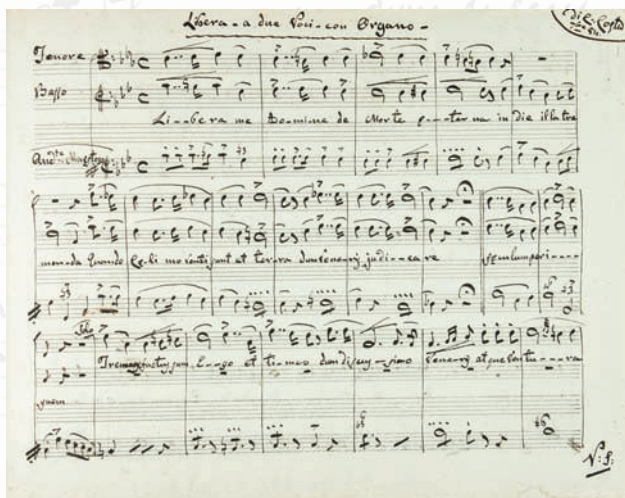 Libera - a due Voci - con Organo -
Tenore
Basso
Li - bera me Domine de Morte e - - terna in die illa tre
And.te Maestoso
menda Quando Celi movendi sunt et ter - ra dum veneris judi - ca re seculum per i - - - -
Solo
Tremens factus sum E - go et ti - meo dum discussio venerit atque ventu - - - ra
gnem
V: S: